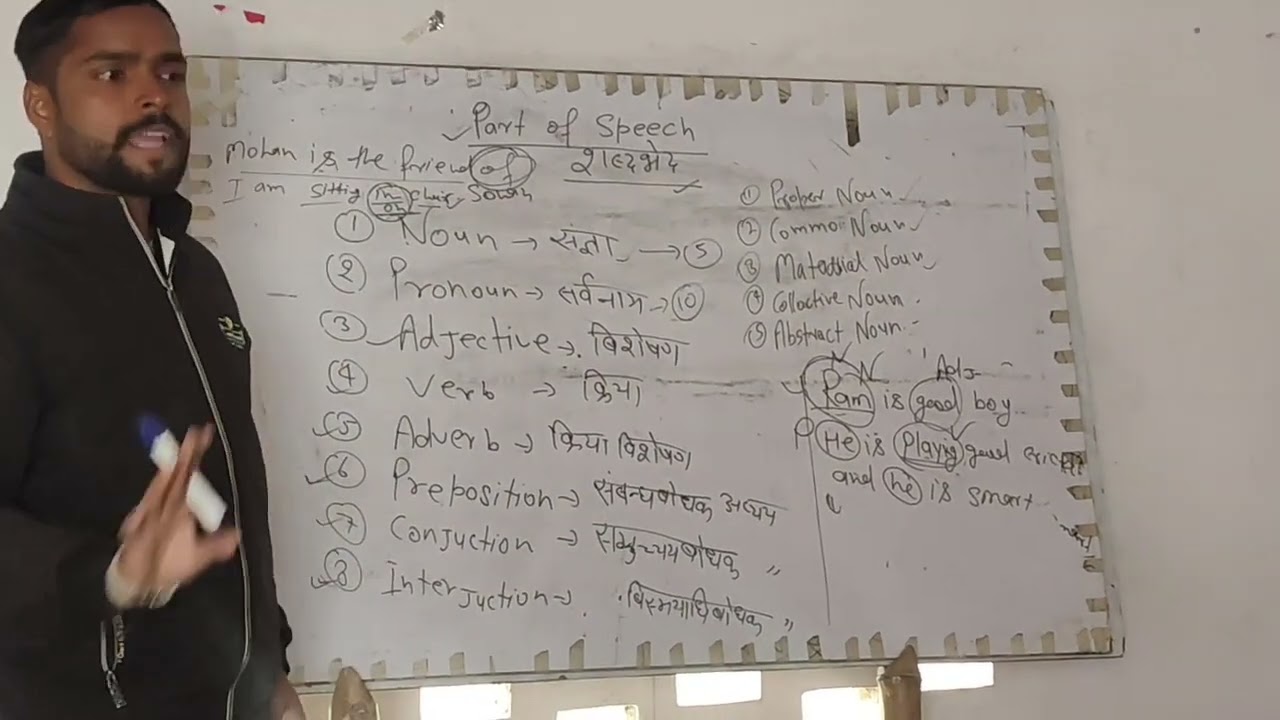 Part of Speech
शब्दभेद
Mohan is the friend of
Sohan
I am Sittig in chair
on
① Noun → संज्ञा → ⑤
② Pronoun → सर्वनाम → ⑩
③ Adjective → विशेषण
④ Verb → क्रिया
⑤ Adverb → क्रिया विशेषण
⑥ Preposition → संबन्धबोधक अव्यय
⑦ Conjuction → समुच्चयबोधक "
⑧ Interjuction → विस्मयाधिबोधक "
① Proper Noun
② Common Noun
③ Matadrial Noun
④ Collactive Noun
⑤ Abstract Noun
N Adj
Ram is good boy
P He is Playig good
and he is smart